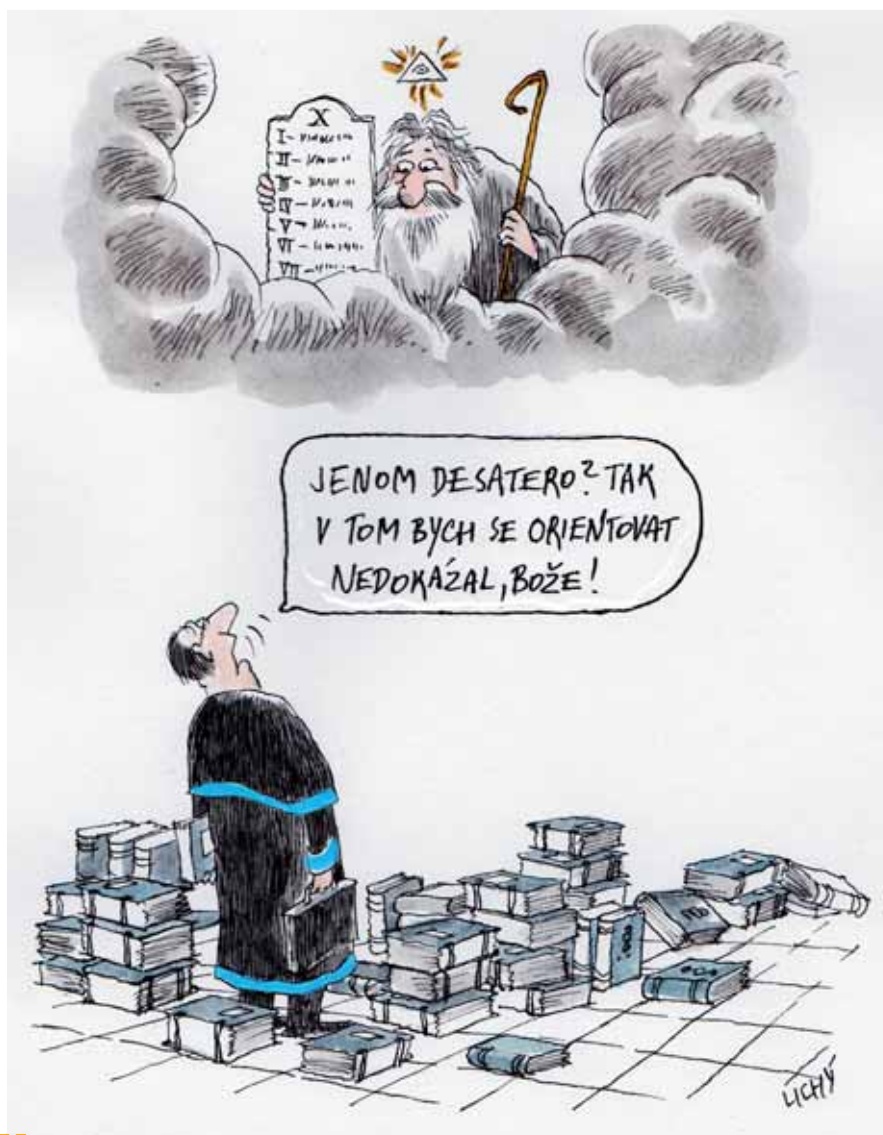 X
I-
II-
III-
IV-
V-
VI-
VII-
JENOM DESATERO? TAK
V TOM BYCH SE ORIENTOVAT
NEDOKÁZAL, BOŽE!
LICHÝ